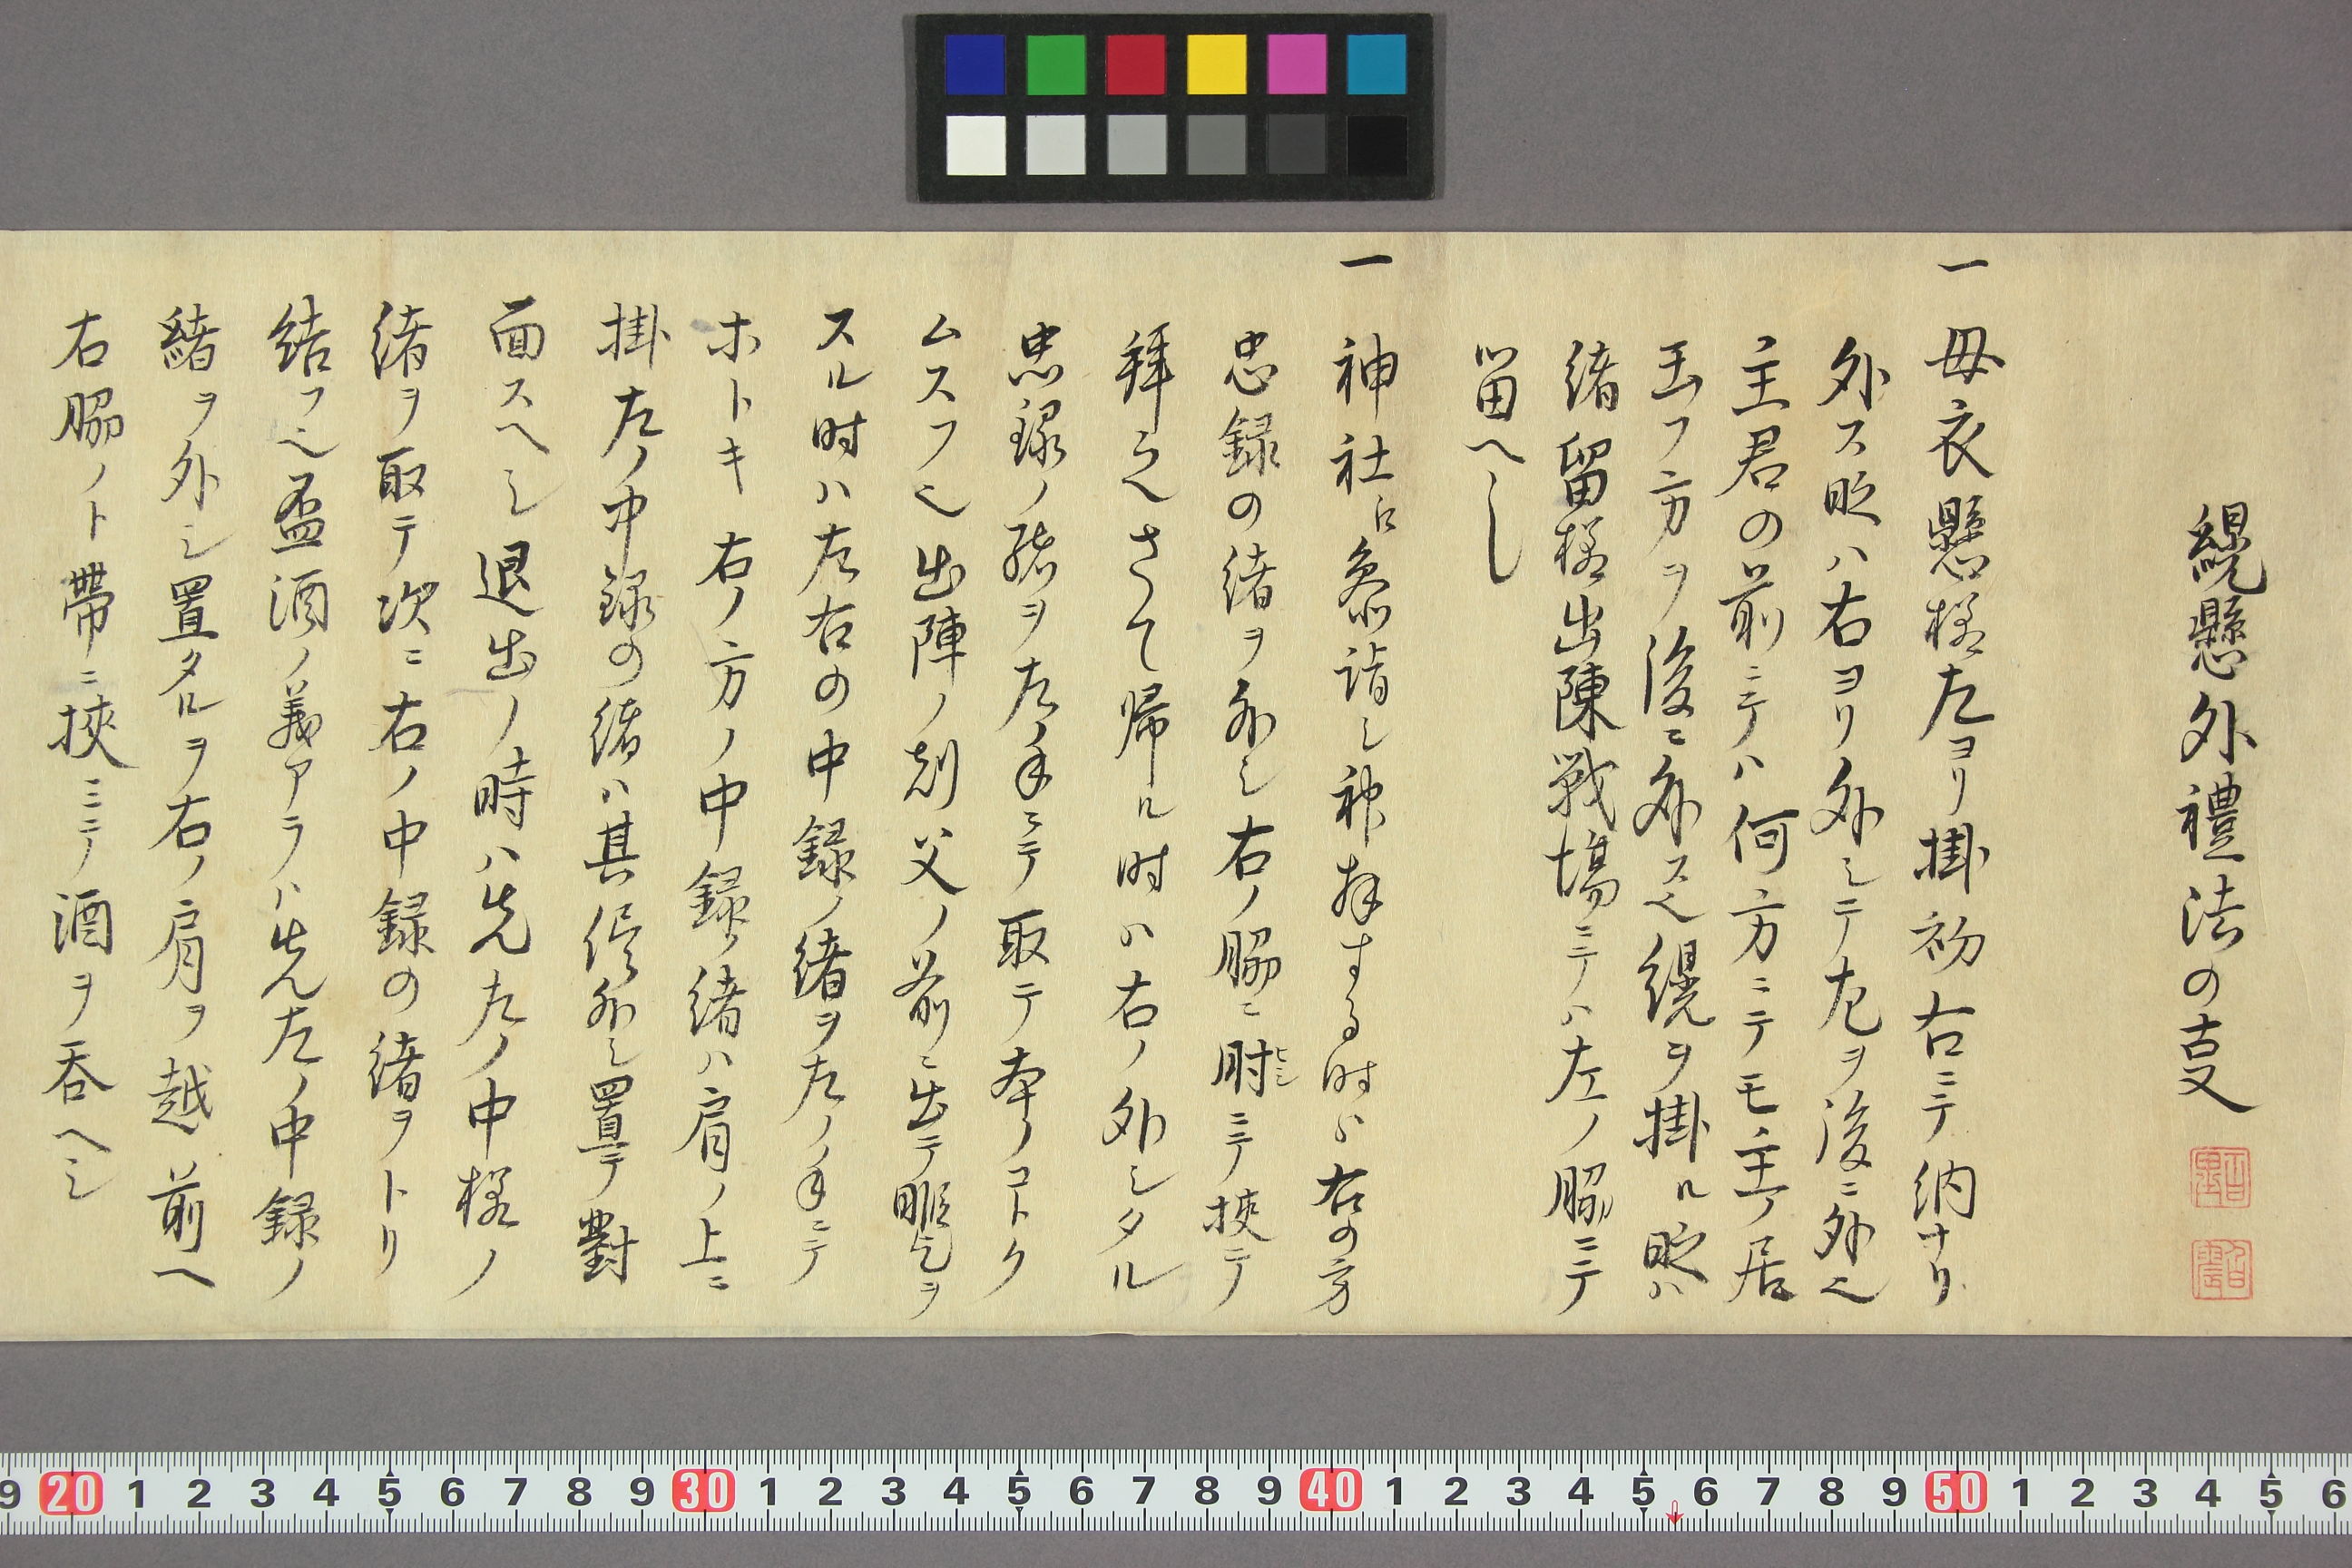 縨懸外禮法の㕝
一 母衣懸様左ヨリ掛初右ニテ納ナリ
外ス時ハ右ヨリ外シテ左ヲ後ニ外ヘ
主君の前ニテハ何方ニテモ主ノ居
玉フ方ヲ後ニ外スヘ縨ヲ掛ル時ハ
緒留様出陳戦場ニテハ左ノ脇ニテ
留へし
一 神社江参詣し神拝する時ハ右の方
忠録の緒ヲ外し右ノ脇ニ肘ニテ挾テ
拝之さて帰ル時ハ右ノ外シタル
忠録ノ緒ヲ左ノ手ニテ取テ本ノコトク
ムスフヘ出陣ノ刻父ノ前ニ出テ暇乞ヲ
スル時ハ左右の中録ノ緒ヲ左ノ手ニテ
ホトキ右ノ方ノ中録ノ緒ハ肩ノ上ニ
掛左ノ中録の緒ハ其侭外し置テ對
面スヘシ退出ノ時ハ先左ノ中様ノ
緒ヲ取テ次ニ右ノ中録の緒ヲトリ
結フヘ盃酒ノ義アラハ先左ノ中録ノ
緒ヲ外シ置タルヲ右ノ肩ヲ越前へ
右脇ノト帶ニ挾ミテ酒ヲ呑ヘシ
9 20 1 2 3 4 5 6 7 8 9 30 1 2 3 4 5 6 7 8 9 40 1 2 3 4 5 6 7 8 9 50 1 2 3 4 5 6